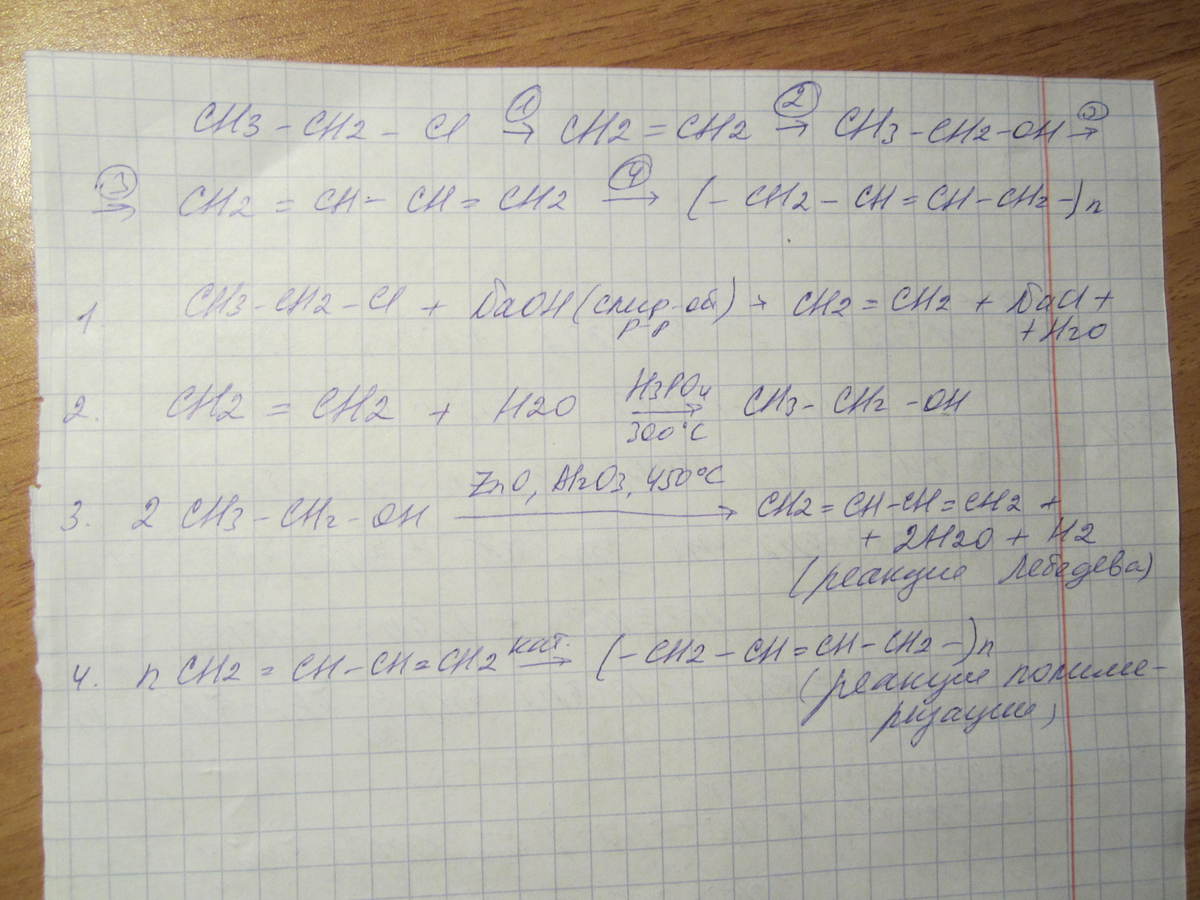 CH3 - CH2 - Cl ① → CH2 = CH2 ② → CH3 - CH2 - OH ③ →
③ → CH2 = CH - CH = CH2 ④ → (- CH2 - CH = CH - CH2 -)n
1. CH3 - CH2 - Cl + NaOH (спир-ой р-р) → CH2 = CH2 + NaCl +
+ H2O
2. CH2 = CH2 + H2O H3PO4 → 300°C CH3 - CH2 - OH
3. 2 CH3 - CH2 - OH ZnO, Al2O3, 450°C → CH2 = CH - CH = CH2 +
+ 2H2O + H2
(реакция Лебедева)
4. n CH2 = CH - CH = CH2 кат. → (- CH2 - CH = CH - CH2 -)n
(реакция полиме-
ризации)